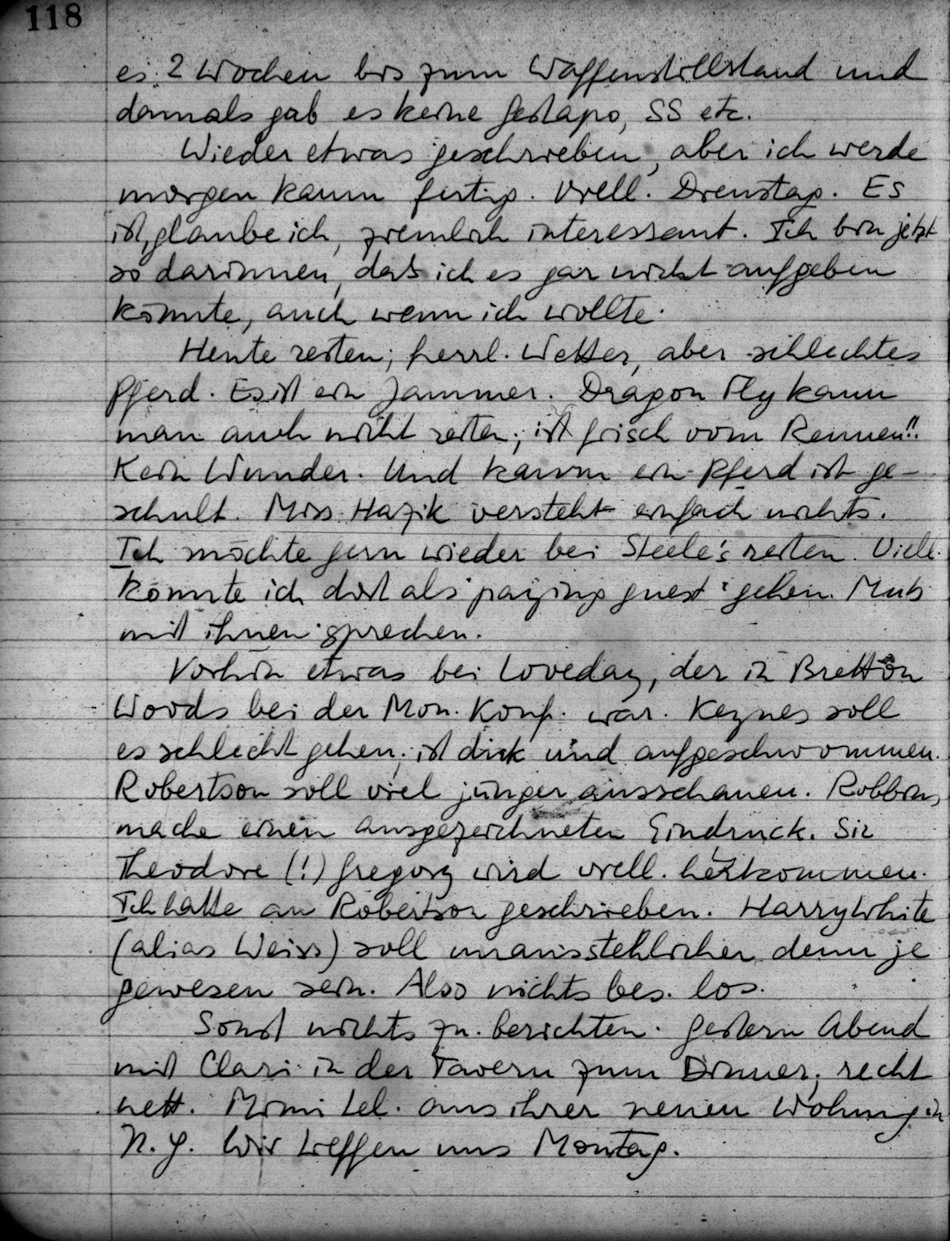 118
es 2 Wochen bis zum Waffenstillstand und
damals gab es keine Gestapo, SS etc.
Wieder etwas geschrieben, aber ich werde
morgen kaum fertig. Viell. Dienstag. Es
ist, glaube ich, ziemlich interessant. Ich bin jetzt
so darinnen, daß ich es gar nicht aufgeben
könnte, auch wenn ich wollte.
Heute reiten; herrl. Wetter, aber schlechtes
Pferd. Es ist ein Jammer. Dragon Fly kann
man auch nicht reiten; ist frisch vom Rennen!!
Kein Wunder. Und kaum ein Pferd ist ge-
schult. Miss Hazik versteht einfach nichts.
Ich möchte gern wieder bei Steele's reiten. Viell.
könnte ich dort als "paying guest" gehen. Muß
mit ihnen sprechen.
Vorhin etwas bei Loveday, der in Bretton
Woods bei der Mon. Konf. war. Keynes soll
es schlecht gehen; ist dick und aufgeschwommen.
Robertson soll viel jünger ausschauen. Robbins
mache einen ausgezeichneten Eindruck. Sir
Theodore (!) Gregory wird viell. herkommen.
Ich hatte an Robertson geschrieben. Harry White
(alias Weiss) soll unausstehlicher denn je
gewesen sein. Also nichts bes. los.
Sonst nichts zu berichten. Gestern Abend
mit Clari in der Tavern zum Dinner, recht
nett. Mimi tel. aus ihrer neuen Wohnung in
N.Y. Wir treffen uns Montag.